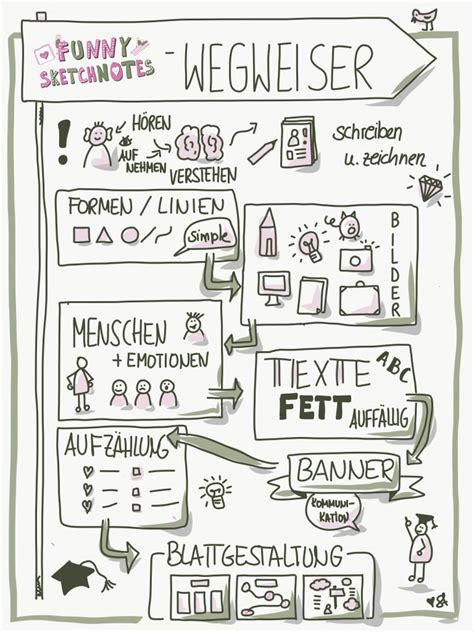 FUNNY
SKETCHNOTES
-WEGWEISER
! HÖREN
AUF
NEHMEN
VERSTEHEN
schreiben
u. zeichnen
FORMEN / LINIEN
simple
BILDER
MENSCHEN
+ EMOTIONEN
TEXTE
ABC
FETT
AUFFÄLLIG
AUFZÄHLUNG
BANNER
KOMMUNI-
KATION
BLATTGESTALTUNG